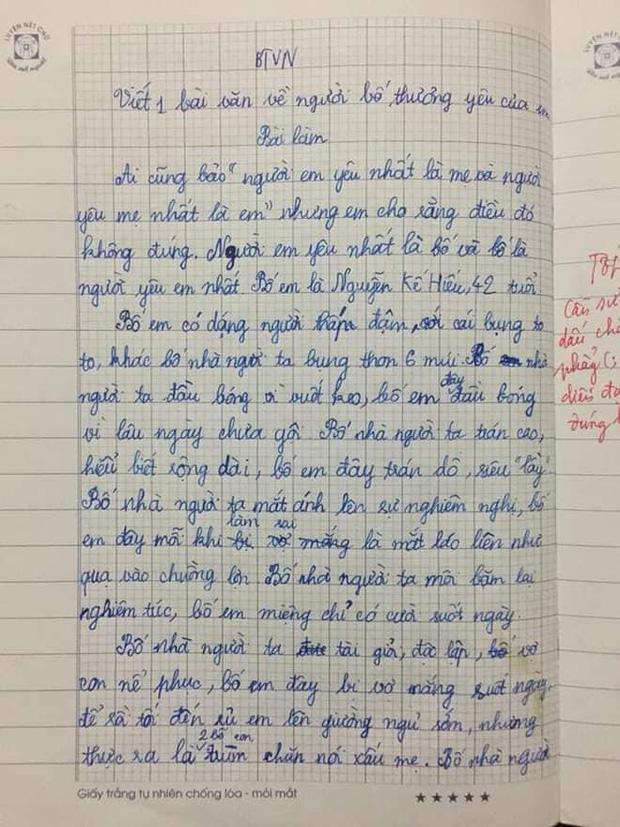 LUYỆN NÉT CHỮ
BTVN
Viết 1 bài văn về người bố thương yêu của em
Bài làm
Ai cũng bảo "người em yêu nhất là mẹ và người
yêu mẹ nhất là em" nhưng em cho rằng điều đó
không đúng. Người em yêu nhất là bố và bố là
người yêu em nhất. Bố em là Nguyễn Kế Hiếu, 42 tuổi
Bố em có dáng người thấp đậm, với cái bụng to
to, khác bố nhà người ta bụng thon 6 múi. Bố nhà
người ta đầu bóng vì vuốt keo, bố em đây đầu bóng
vì lâu ngày chưa gội. Bố nhà người ta trán cao,
hiểu biết rộng dài, bố em đây trán dồ, siêu "lầy".
Bố nhà người ta mắt ánh lên sự nghiêm nghị, bố
em đây mỗi khi làm sai là mắt láo liên như
quạ vào chuồng lợn Bố nhà người ta môi bặm lại
nghiêm túc, bố em miệng chỉ có cười suốt ngày.
Bố nhà người ta tài giỏi, độc lập, vợ
con nể phục, bố em đây bị vợ mắng suốt ngày,
để rồi tối đến rủ em lên giường ngủ sớm, nhưng
thực ra là 2 bố con trùm chăn nói xấu mẹ. Bố nhà người
Giấy trắng tự nhiên chống lóa - mỏi mắt
Cần sử
dấu ch
phẩy (;
diễn đạ
đúng